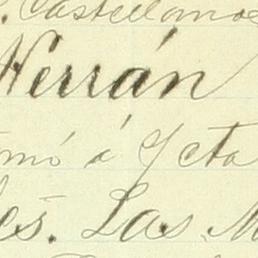 . Castellanos
Herrán
mó á Ycta
es. Las M